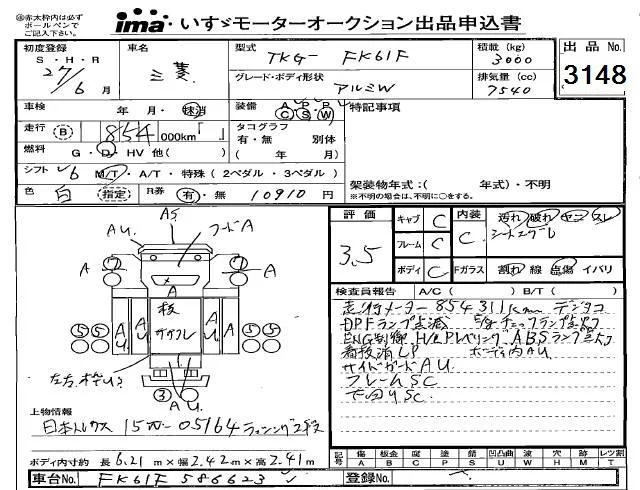 ◎赤太枠内は必ず
ボールペンで
ご記入下さい。
ima いすゞモーターオークション出品申込書
初度登録 S・H・R 27/6 月
車名 三菱
型式 TKG- FK61F
積載 (kg) 3000
出品No. 3148
グレード・ボディ形状 アルミW
排気量 (cc) 7540
車検 年 月・速消
装備 A P C S W
特記事項
走行 B 854 000km「 」
タコグラフ 有・無 別体
( 年 月)
燃料 G・D・HV 他( )
シフト 6 M/T・A/T・特殊(2ペダル・3ペダル)
架装物年式:( 年式)・不明
※不明の場合は、不明に○をする。
色 白 指定 R券 有・無 10910 円
評価 3.5
キャブ C 内装 C 汚れ 破れ ヤニ スレ
フレーム C
ボディ C Fガラス 割れ 線 点傷 イバリ
検査員報告 A/C ( ) B/T ( )
走行メーター 854311km デジタコ
DPFランプ点滅
ABSランプ点灯
看板消しP ボディ内AU
サイドガードAU
フレームSC
下回りSC
A5
AU フードA
A A
A
AU AU
⑤⑤ ⑤⑤
③
AU
上物情報
日本トレクス 15
ボディ内寸約 長 6.21 m×幅 2.42 m×高 2.41 m
記号 傷 板金 腐 塗 錆 凹 凸凹曲 波 穴 跡 レツ割
A B C P S U W H M T
車台No. FK61F 586623
登録No.